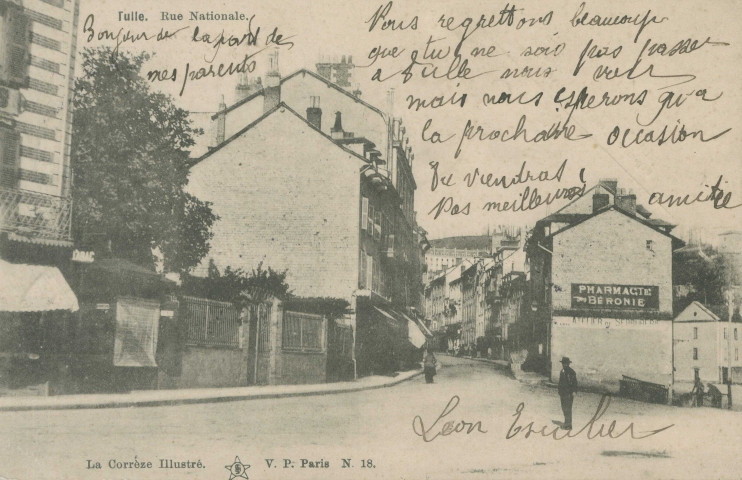 Tulle. Rue Nationale.
Bonjour de la part de
mes parents
Vous regrettons beaucoup
que tu ne sois pas passer
a Tulle nous voir
mais nous esperons qu'a
la prochaine occasion
Tu viendras!
Vos meilleures amitié
PHARMACIE
BÉRONIE
ATELIER DE SERRURERIE
Léon Escu
La Corrèze Illustré. V. P. Paris N. 18.